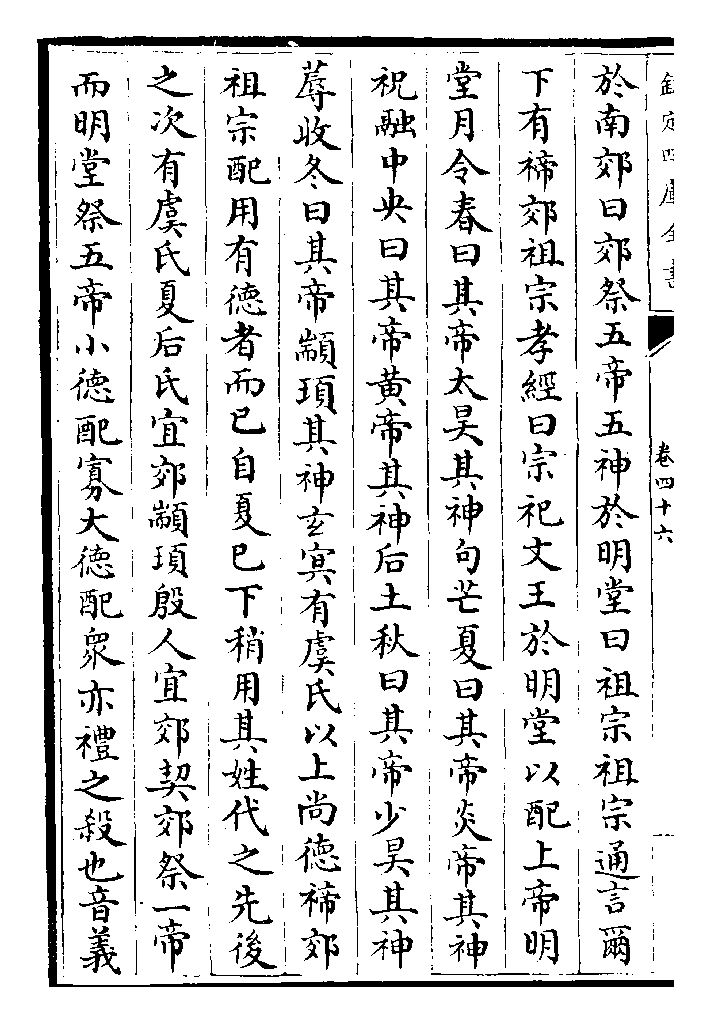 欽定四庫全書
卷四十六
於南郊曰郊祭五帝五神於明堂曰祖宗祖宗通言爾
下有禘郊祖宗孝經曰宗祀文王於明堂以配上帝明
堂月令春曰其帝太昊其神句芒夏曰其帝炎帝其神
祝融中央曰其帝黄帝其神后土秋曰其帝少昊其神
蓐收冬曰其帝顓頊其神玄冥有虞氏以上尚德禘郊
祖宗配用有德者而已自夏已下稍用其姓代之先後
之次有虞氏夏后氏宜郊顓頊殷人宜郊契郊祭一帝
而明堂祭五帝小德配寡大德配衆亦禮之殺也音義